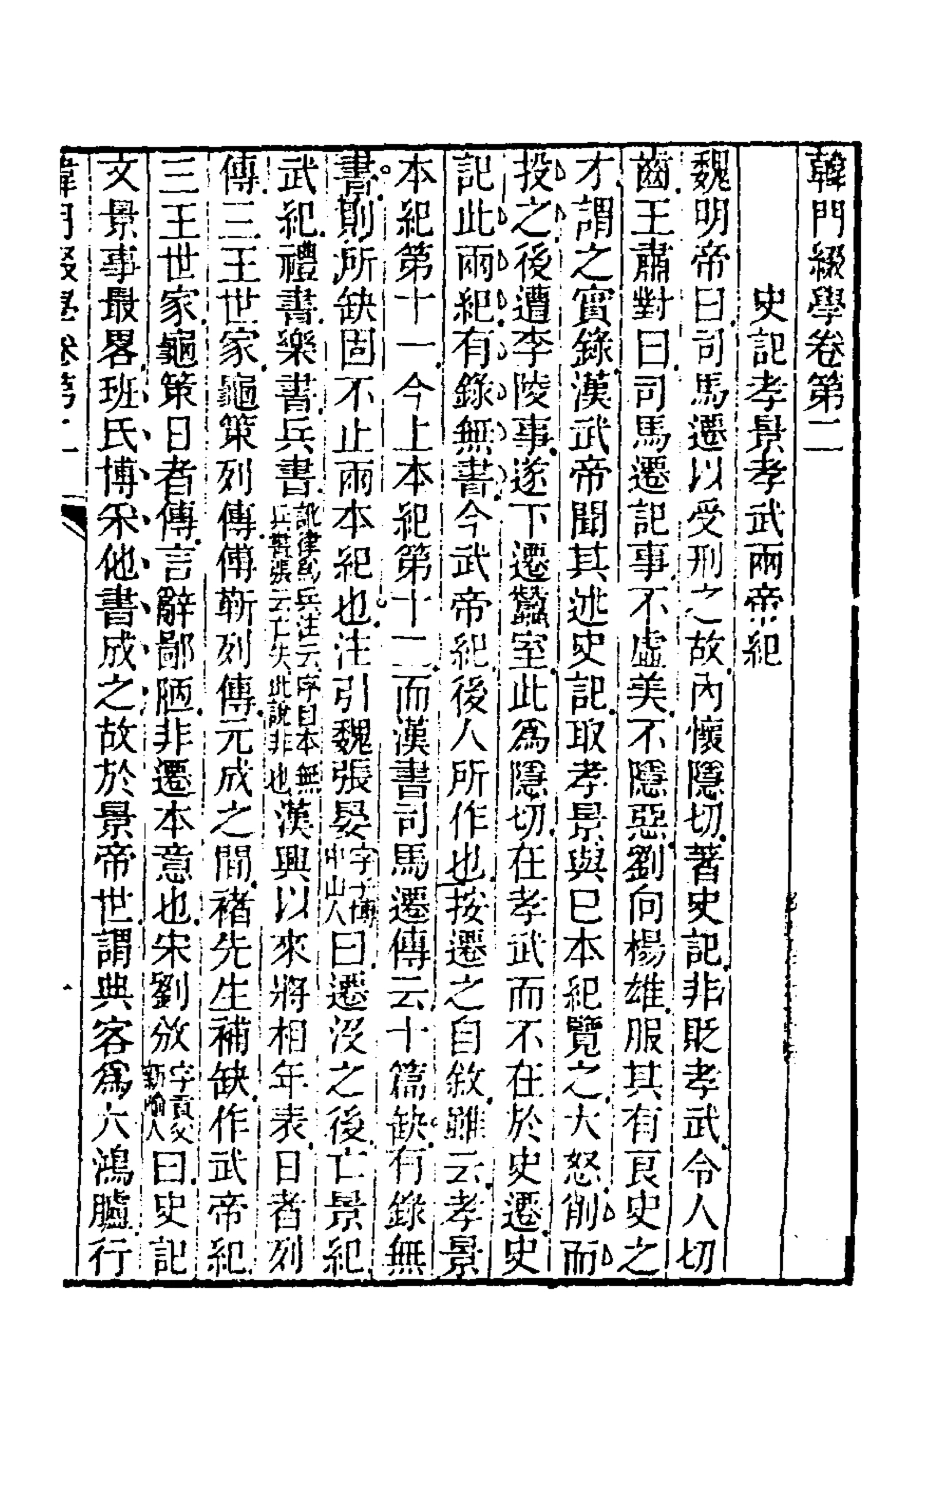 韓門綴學卷第二
史記孝景孝武兩帝紀
魏明帝曰司馬遷以受刑之故內懷隱切著史記非貶孝武令人切
齒王肅對曰司馬遷記事不虛美不隱惡劉向楊雄服其有良史之
才謂之實錄漢武帝聞其述史記取孝景與已本紀覽之大怒削而
投之後遭李陵事遂下遷蠶室此為隱切在孝武而不在於史遷史
記此兩紀有錄無書今武帝紀後人所作也按遷之自敘雖云孝景
本紀第十一今上本紀第十二而漢書司馬遷傳云十篇缺有錄無
書則所缺固不止兩本紀也注引魏張晏字子博中山人曰遷沒之後亡景紀
武紀禮書樂書兵書訛律為兵注云序目本無兵書張云亡失此說非也漢興以來將相年表日者列
傳三王世家龜策列傳傅靳列傳元成之間褚先生補缺作武帝紀
三王世家龜策日者傳言辭鄙陋非遷本意也宋劉攽字貢父新喻人曰史記
文景事最畧班氏博采他書成之故於景帝世謂典客為大鴻臚行
韓門綴學卷第二